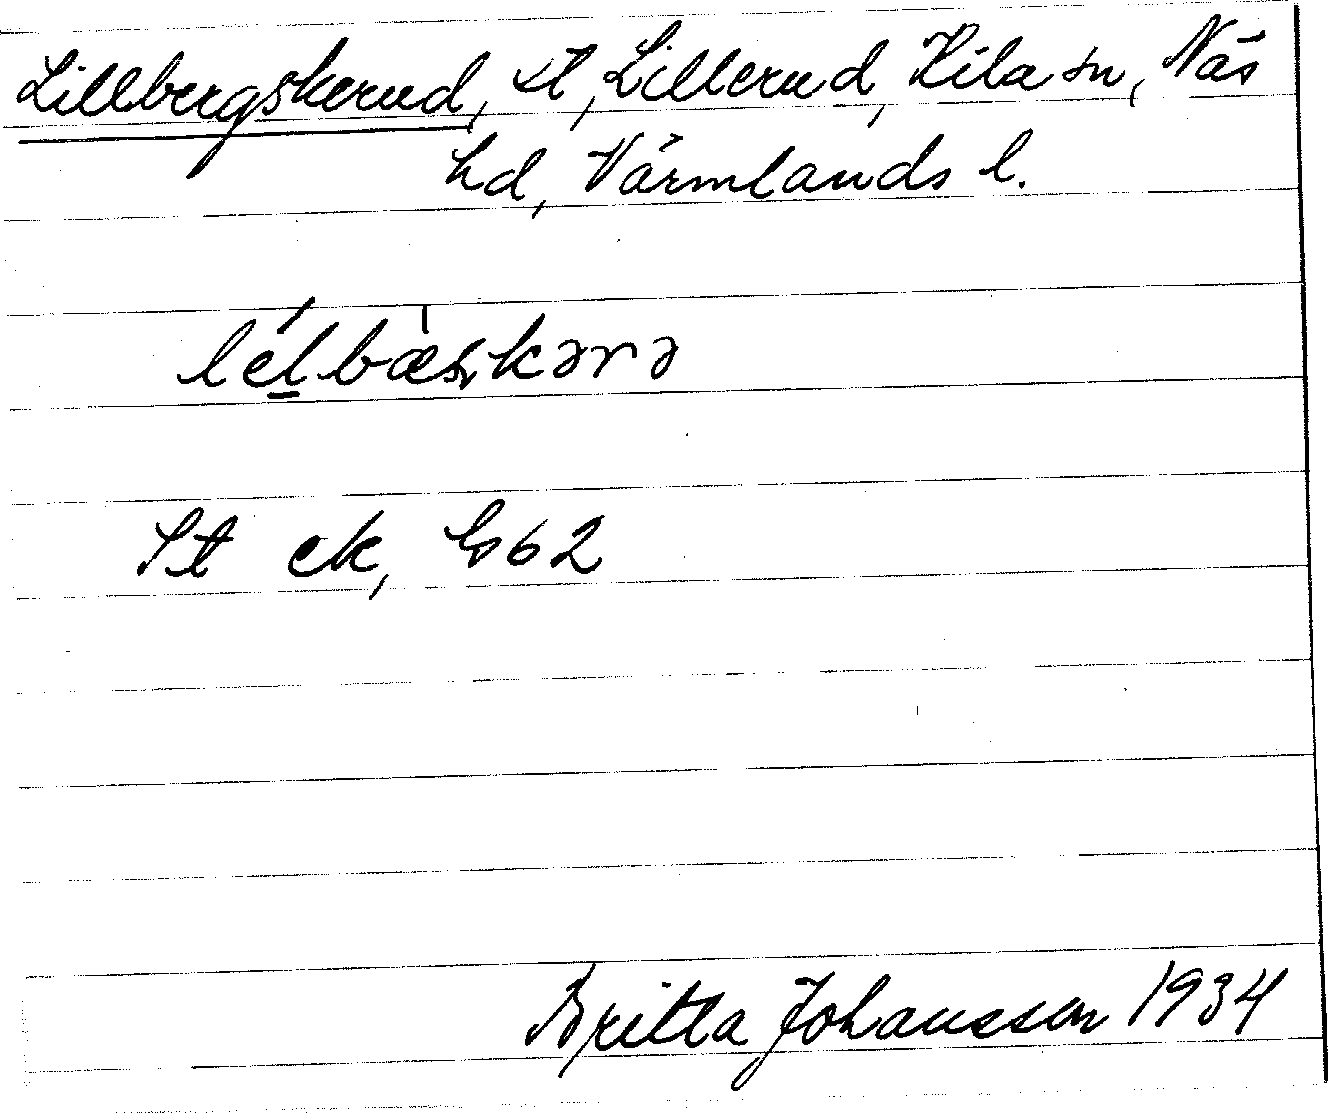 Lillbergskerud, st, Lillerud, Kila sn, Näs
hd, Värmlands l.
lélbæ̀skərə
St ek, G62
Britta Johansson 1934